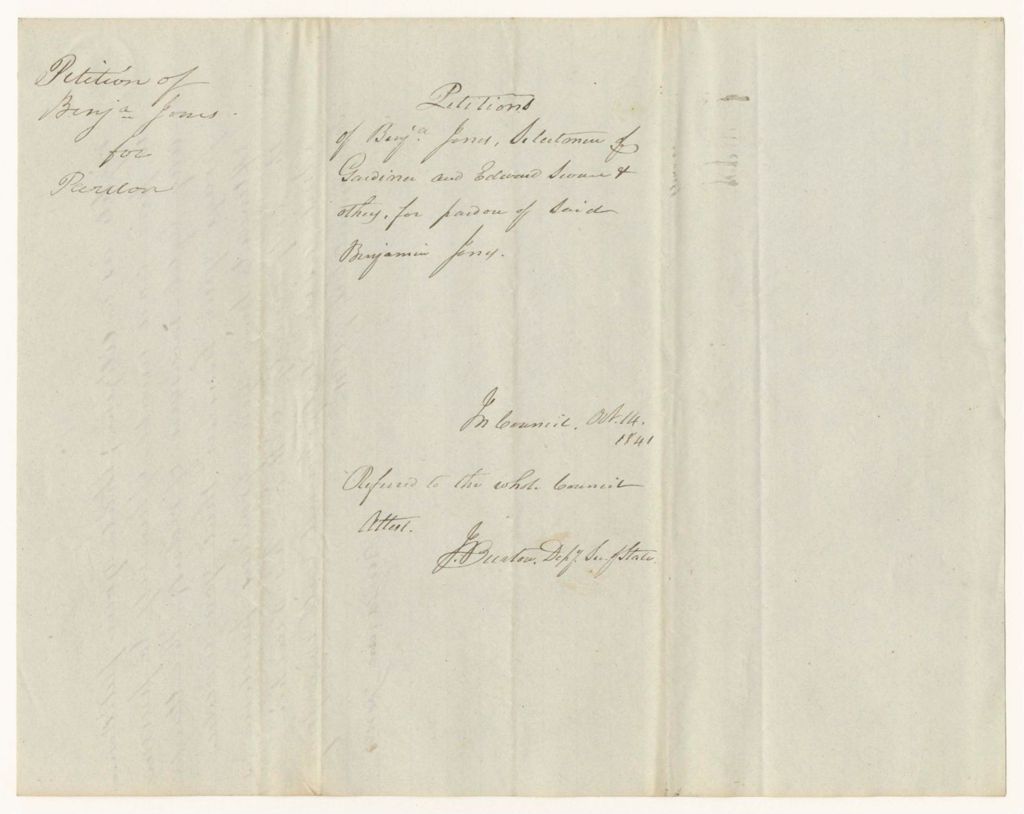 Petition of
Benja Jones
for
Pardon
Petitions
of Benja Jones, Selectmen of
Gardiner and Edward Swan &
others, for pardon of said
Benjamin Jones.
In Council, Oct. 14.
1841
Referred to the whole Council
Attest.
J. Burton, Depy. Sec. of State